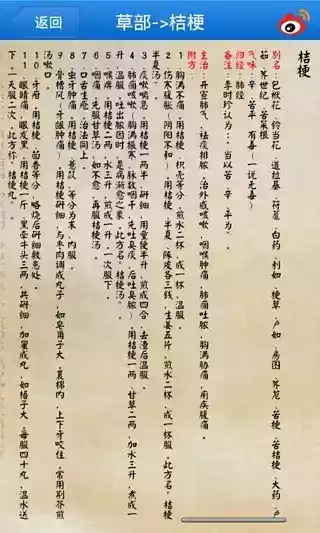 返回
草部->桔梗
桔梗
别名:包袱花、铃当花、道拉基、符蔰、白药、利如、梗草、卢如、房图、荠苨、苦梗、苦桔梗、大药、卢
茹、芥世纪、苦菜根
气味:苦平、有毒(一说无毒)
归经:肺经
备注:李时珍认为:当以苦、辛、平为。
主治:开宣肺气、祛痰排脓、治外感咳嗽、咽喉肿痛、肺痈吐脓、胸满胁痛、痢疾腹痛。
附方:
1、胸满不痛。用桔梗、枳壳等分,煎水二杯,成一杯,温服。
2、伤寒腹胀(阴阳不和)。用桔梗、半夏、陈皮各三钱,生姜五片,煎水二杯,成一杯服。此方名“桔梗
半夏汤”
3、痰嗽喘急。用桔梗一两半,研细,用童便半升,煎成四合,去渣后温服。
4、肺痈咳嗽(胸满振寒,脉数咽干,先吐臭痰,后吐臭脓)。用桔梗一两、甘草二两、加水三升,煮成一
升,温服。吐出脓因时,是病渐愈之象。此方名“桔梗汤”
5、喉痹。用桔梗二两、水三升,煎成一升,一次服下。
6、咽痛。先服甘草汤,如不愈,再服桔梗汤。
7、口舌生疮。治法同上。
8、虫牙肿痛。用桔梗、薏苡,等分为末,内服。
9、骨槽风(牙龈肿痛)。用桔梗研细,与枣肉调成丸子,如皂角子大。裹绵内,上下牙咬住。常用荆芥煎
汤漱口。
10、牙疳。用桔梗、茴香等分,略烧后研细敷患处
11、眼睛痛,眼发黑。用桔梗一斤、黑牵牛头三两,共研细,加蜜成丸,如梧子大。每服四十丸,温水送
下。一天服二次。此方名“桔梗丸”。